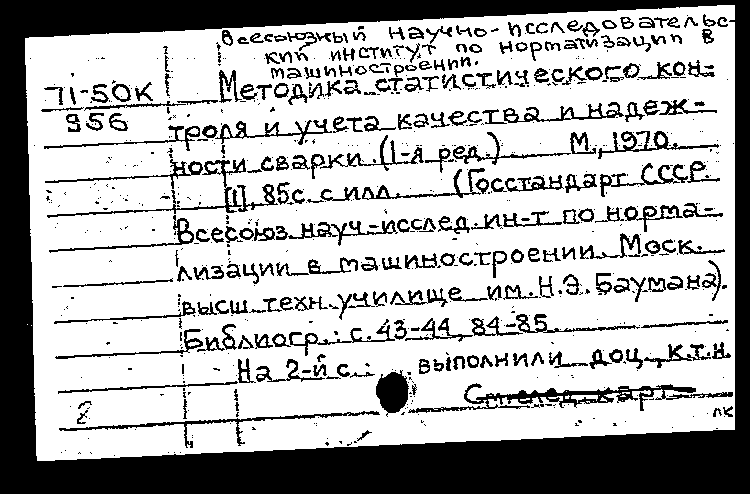 Всесоюзный научно-исследовательс-
кий институт по норматизации в
машиностроении.
71-50К Методика статистического кон-
956 троля и учета качества и надеж-
ности сварки. (1-я ред.) М., 1970.
[1], 85с. с илл. (Госстандарт СССР.
Всесоюз. науч-исслед. ин-т по норма-
лизации в машиностроении. Моск.
высш. техн. училище им. Н.Э. Баумана).
Библиогр.: с. 43-44, 84-85.
На 2-й с.: выполнили доц., к.т.н.
См. след. карт.
2
лк